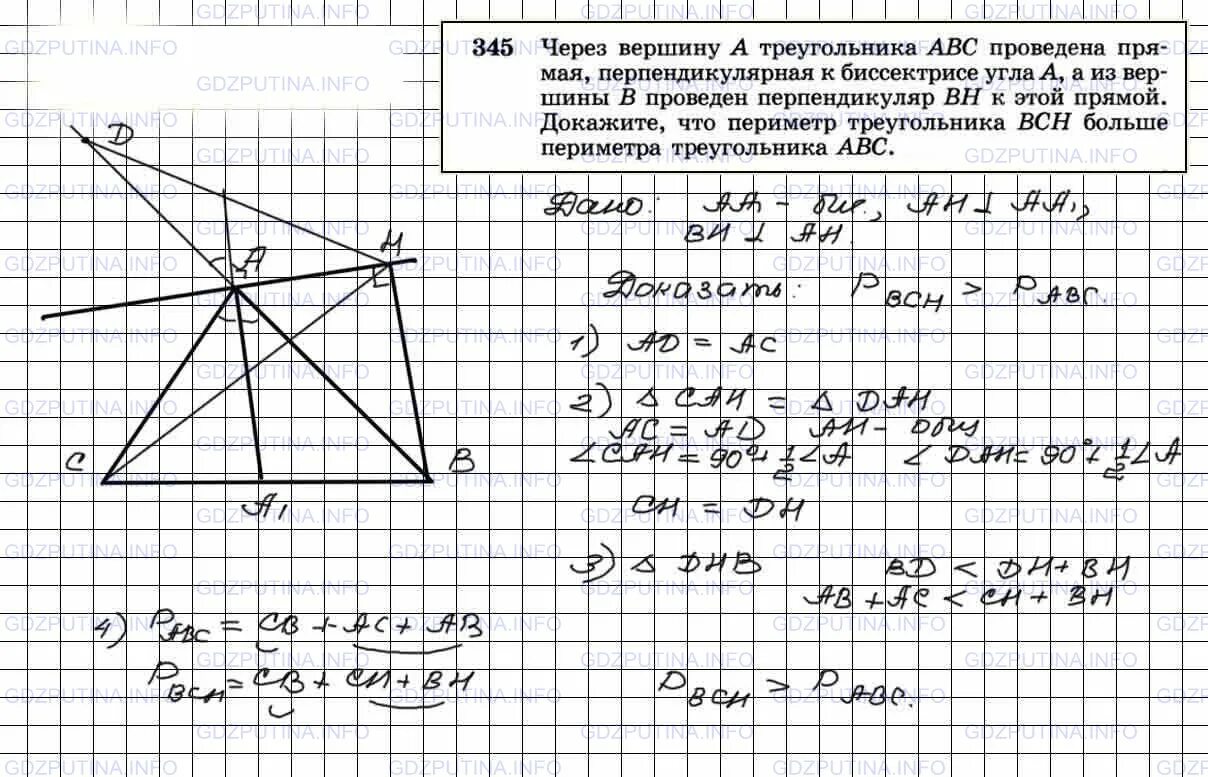 345 Через вершину A треугольника ABC проведена пря-
мая, перпендикулярная к биссектрисе угла A, а из вер-
шины B проведен перпендикуляр BH к этой прямой.
Докажите, что периметр треугольника BCH больше
периметра треугольника ABC.
Дано: AA₁ - бис., AH ⊥ AA₁,
BH ⊥ AH.
Доказать: P_BCH > P_ABC.
D
A
H
C
B
A₁
1) AD = AC
2) △ CAH = △ DAH
AC = AD AH - общ
∠CAH = 90° + 1/2 ∠A ∠ DAH = 90° + 1/2 ∠A
CH = DH
3) △ DHB BD < DH + BH
AB + AC < CH + BH
4) P_ABC = CB + AC + AB
P_BCH = CB + CH + BH P_BCH > P_ABC.
GDZPUTINA.INFO